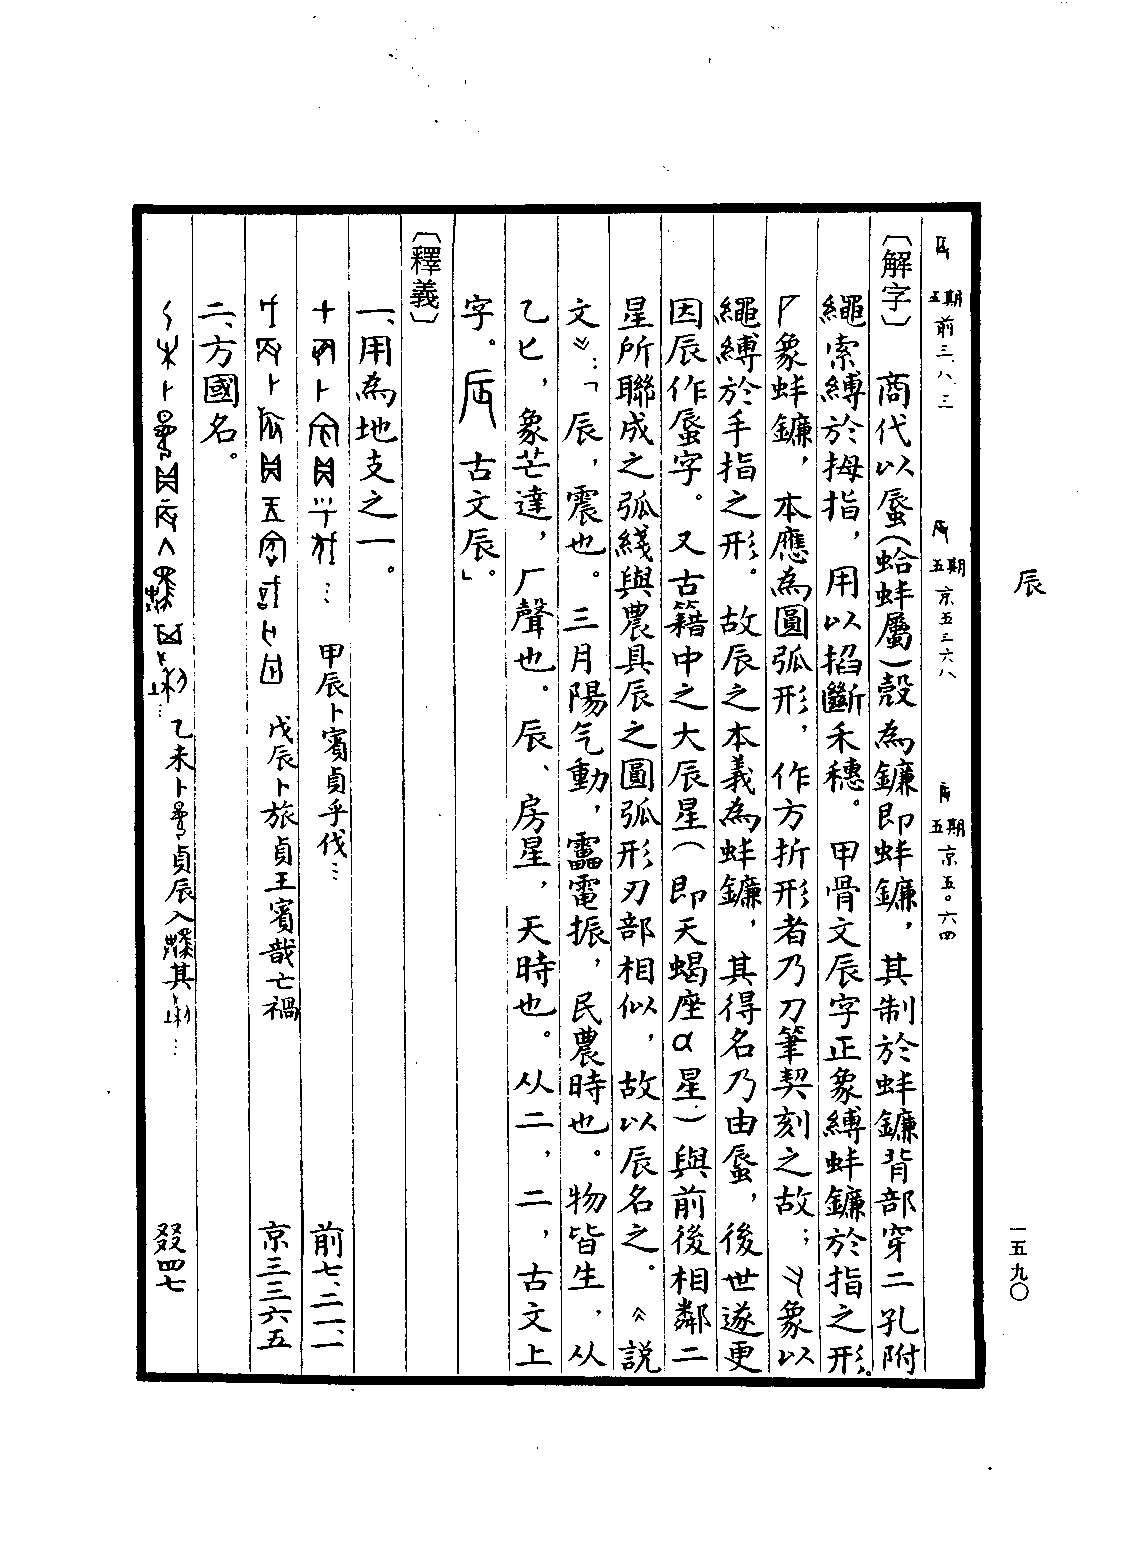 辰
一五九〇
五期 前三.八.三
五期 京五三六八
五期 京五〇六四
〔解字〕商代以蜃(蛤蚌屬)殼為鐮即蚌鐮,其制於蚌鐮背部穿二孔附
繩索縛於拇指,用以掐斷禾穗。甲骨文辰字正象縛蚌鐮於指之形。
象蚌鐮,本應為圓弧形,作方折形者乃刀筆契刻之故;象以
繩縛於手指之形。故辰之本義為蚌鐮,其得名乃由蜃,後世遂更
因辰作蜃字。又古籍中之大辰星(即天蝎座α星)與前後相鄰二
星所聯成之弧綫與農具辰之圓弧形刃部相似,故以辰名之。《說
文》:「辰,震也。三月陽气動,靁電振,民農時也。物皆生,从
乙匕,象芒達,厂聲也。辰、房星,天時也。从二,二,古文上
字。古文辰」。
〔釋義〕
一、用為地支之一。
甲辰卜賓貞乎伐… 前七.二一.一
戊辰卜旅貞王賓哉亡禍 京三三六五
二、方國名。
乙未卜貞辰入其… 綴四七